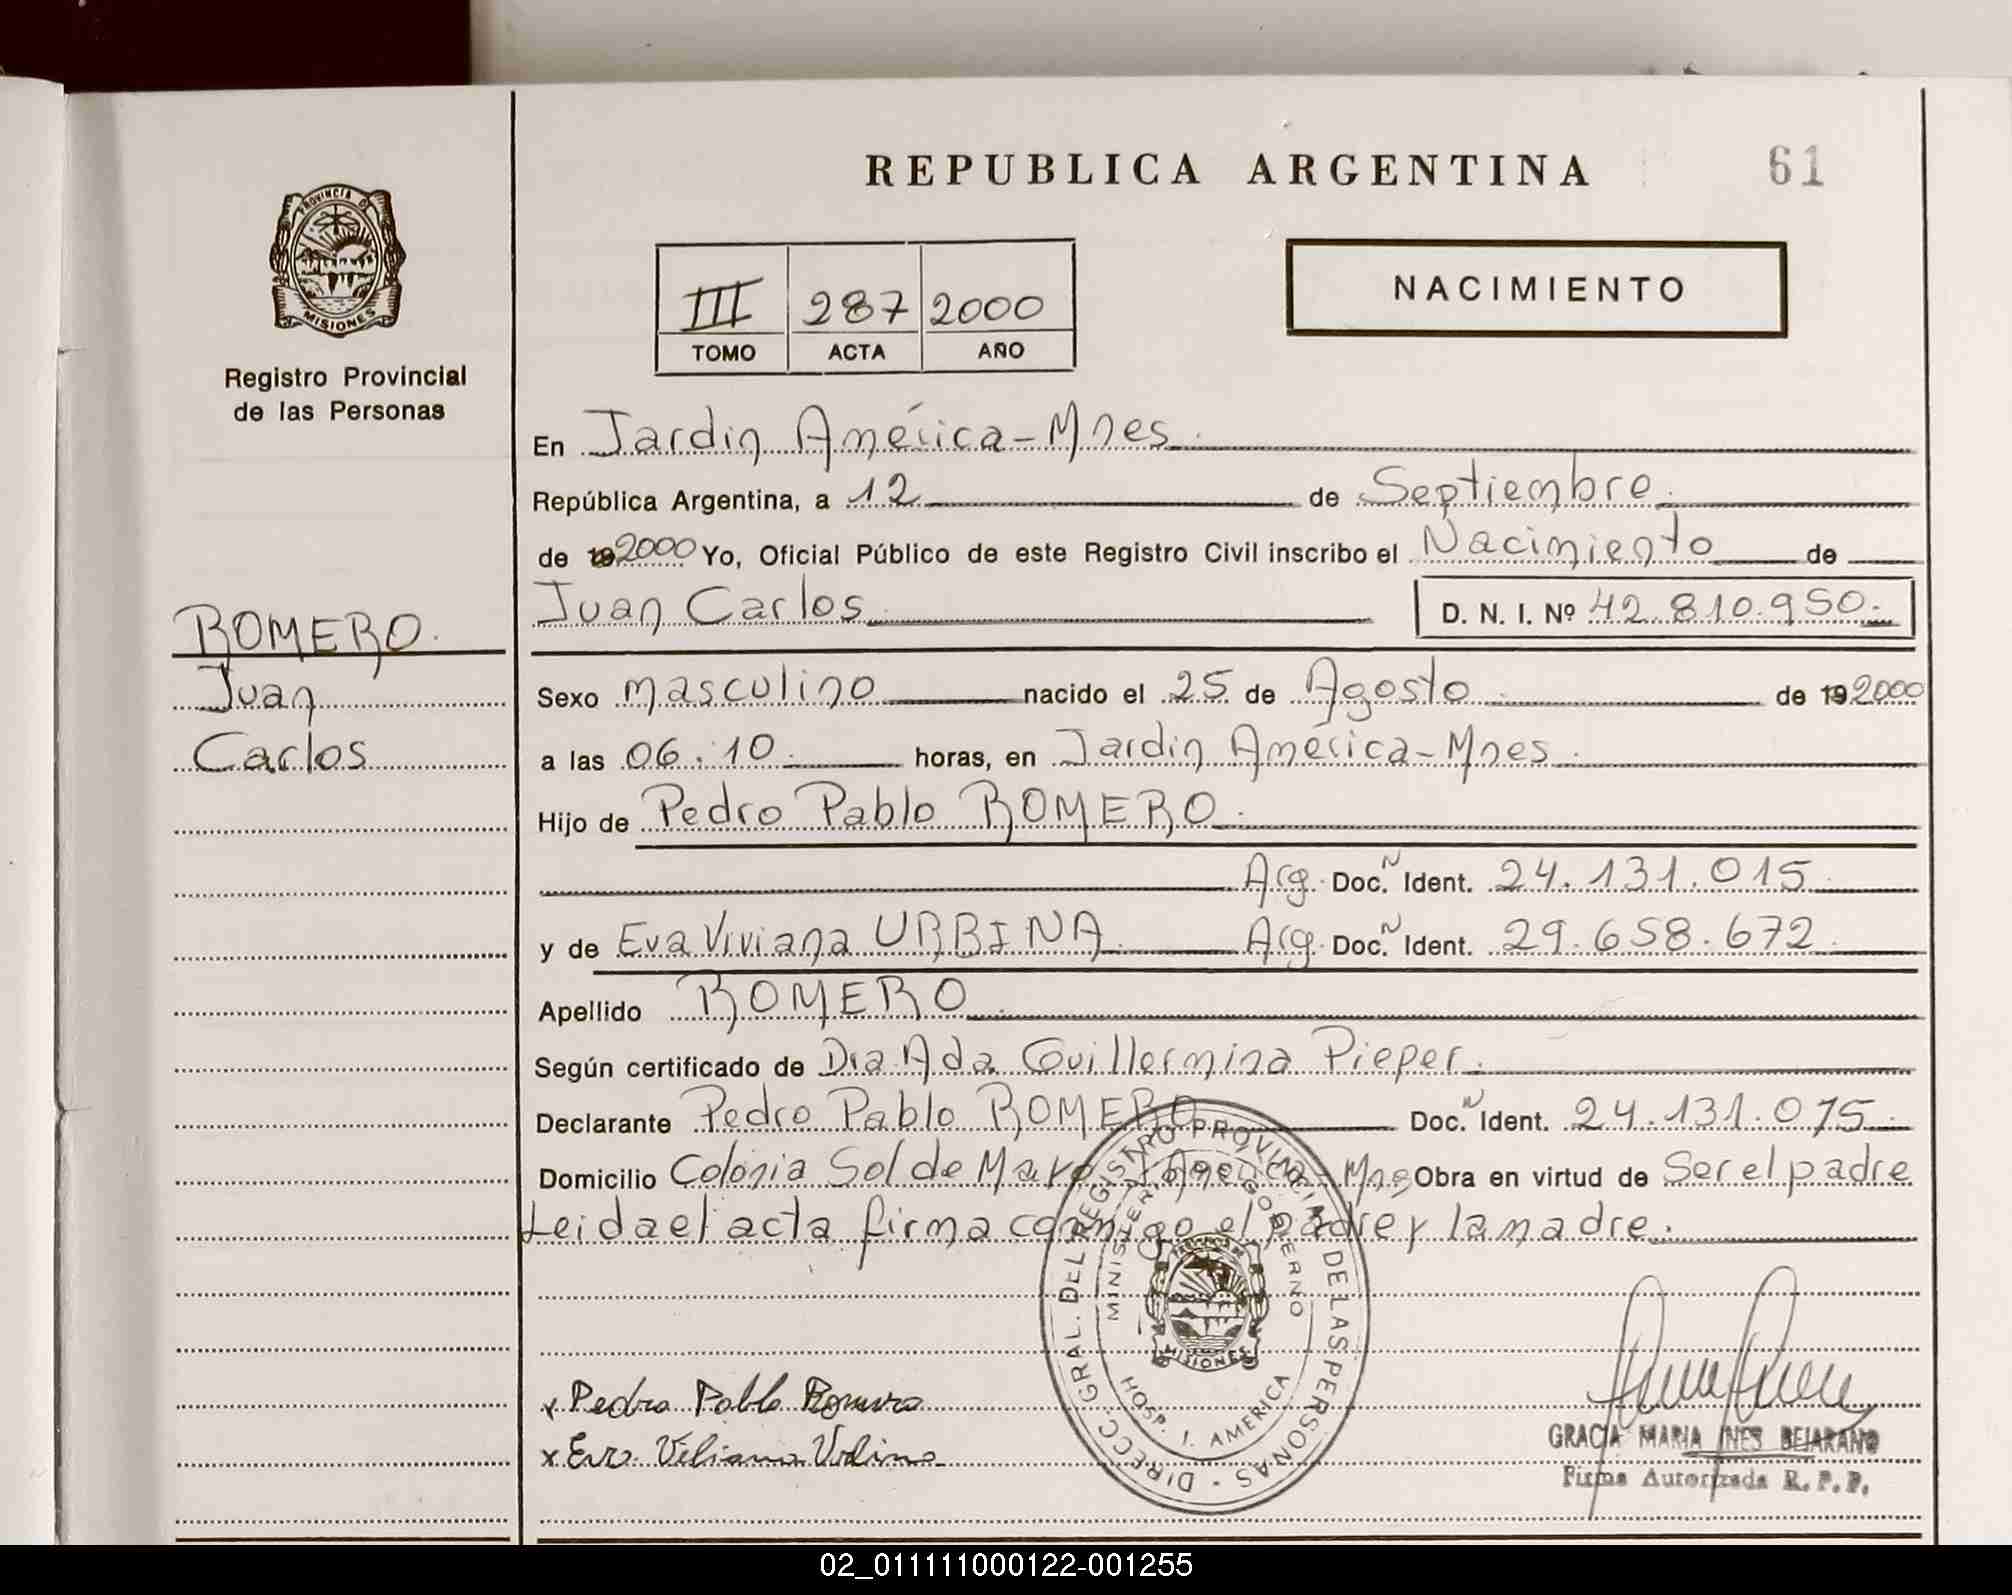 REPUBLICA ARGENTINA
61
PROVINCIA D
MISIONES
Registro Provincial
de las Personas
III 287 2000
TOMO ACTA AÑO
NACIMIENTO
En Jardin América-Mnes.
República Argentina, a 12 de Septiembre.
de 19 2000 Yo, Oficial Público de este Registro Civil inscribo el Nacimiento de
Juan Carlos D. N. I. Nº 42.810.950.
ROMERO.
Juan
Carlos
Sexo masculino nacido el 25 de Agosto de 19 2000
a las 06:10. horas, en Jardin América-Mnes.
Hijo de Pedro Pablo ROMERO.
Arg. Doc. N Ident. 24.131.015.
y de Eva Viviana URBINA. Arg. Doc. N Ident. 29.658.672.
Apellido ROMERO.
Según certificado de Dra. Ada Guillermina Pieper.
Declarante Pedro Pablo ROMERO Doc. N Ident. 24.131.015.
Domicilio Colonia Sol de Mayo J. América - Mns Obra en virtud de Ser el padre
Leida el acta firma conmigo el padre y la madre.
DIRECC. GRAL. DEL REGISTRO PROVINCIAL DE LAS PERSONAS
MINISTERIO DE GOBIERNO
MISIONES
HOSP. J. AMERICA
x Pedro Pablo Romero
x Eva Viviana Urbina
GRACIA MARIA INES BEJARANO
Firma Autorizada R. P. P.
02_011111000122-001255